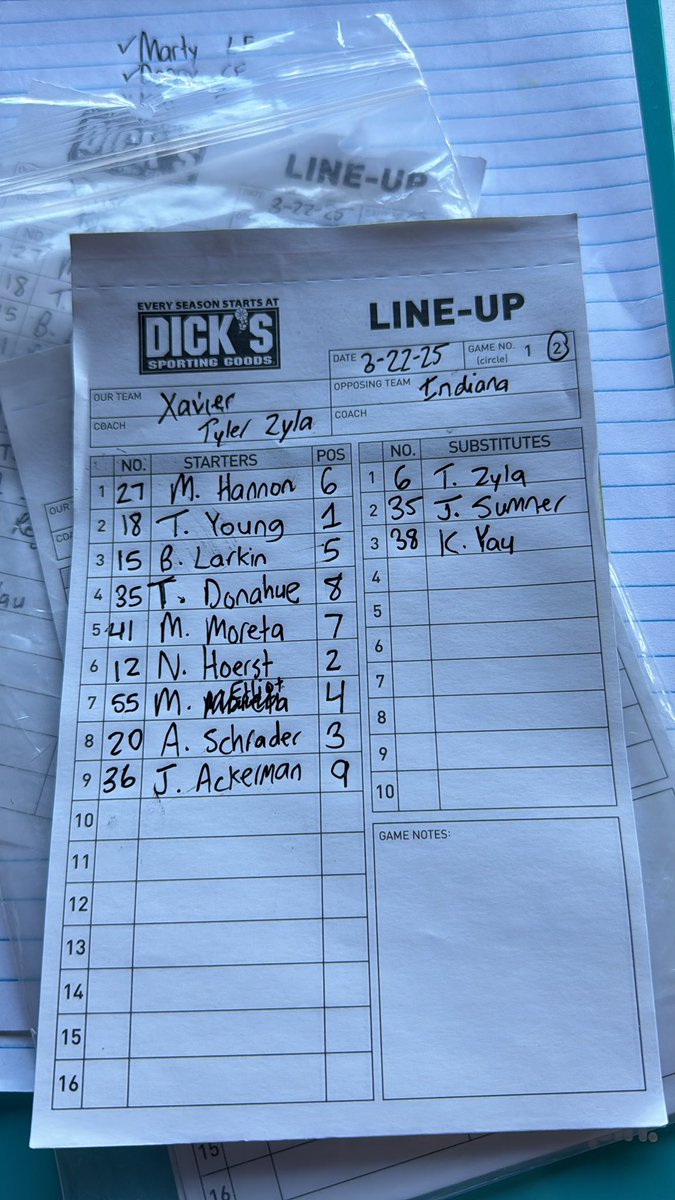 ✓Marty LF
LINE-UP
3-22-25
EVERY SEASON STARTS AT
DICK'S
SPORTING GOODS
LINE-UP
DATE 3-22-25 GAME NO. (circle) 1 2
OUR TEAM Xavier OPPOSING TEAM Indiana
COACH Tyler Zyla COACH
NO. STARTERS POS
1 27 M. Hannon 6
2 18 T. Young 1
3 15 B. Larkin 5
4 35 T. Donahue 8
5 41 M. Moreta 7
6 12 N. Hoerst 2
7 55 M. Elliot 4
8 20 A. Schrader 3
9 36 J. Ackerman 9
10
11
12
13
14
15
16
NO. SUBSTITUTES
1 6 T. Zyla
2 35 J. Sumner
3 38 K. Yau
4
5
6
7
8
9
10
GAME NOTES:
15
16